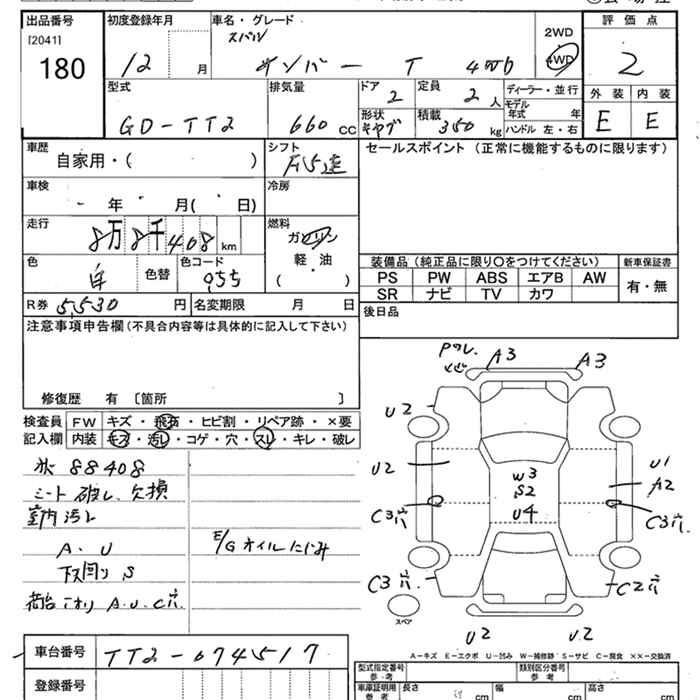 出品番号 初度登録年月 車名・グレード 評価点
[2041] スバル 2WD
180 12 月 サンバー T 4WD 4WD 2
型式 排気量 ドア 定員 ディーラー・並行 外装 内装
2 2 人 モデル年式 年
GD-TT2 660 CC 形状 積載 E E
キャブ 350 kg ハンドル 左・右
車歴 シフト セールスポイント (正常に機能するものに限ります)
自家用・( ) F5速
車検 冷房
年 月( 日)
走行 燃料
8万8千408 km ガソリン
色 色コード 軽・油 装備品 (純正品に限り○をつけてください) 新車保証書
白 色替 955 ( ・ ) PS PW ABS エアB AW 有・無
SR ナビ TV カワ
R券 5530 円 名変期限 月 日 後日品
注意事項申告欄 (不具合内容等は具体的に記入して下さい)
修復歴 有 〔箇所 〕
検査員 FW キズ・飛石・ヒビ割・リペア跡・×要
記入欄 内装 キズ・汚レ・コゲ・穴・スレ・キレ・破レ
88408
シート 破レ、欠損
室内汚レ
A、U E/Gオイルにじみ
下廻り S
荷台 A.U.C穴
車台番号 TT2-074517
登録番号
A3 A3
U2
U2 W3 U1
S2 A2
U4
C3穴 C3穴
C3穴 C2穴
スペア
U2 U2
A−キズ E−エクボ U−凹み W−補修跡 S−サビ C−腐食 ××−交換済
型式指定番号 参考 類別区分番号 参考
車庫証明用 参考 長さ cm 幅 cm 高さ cm